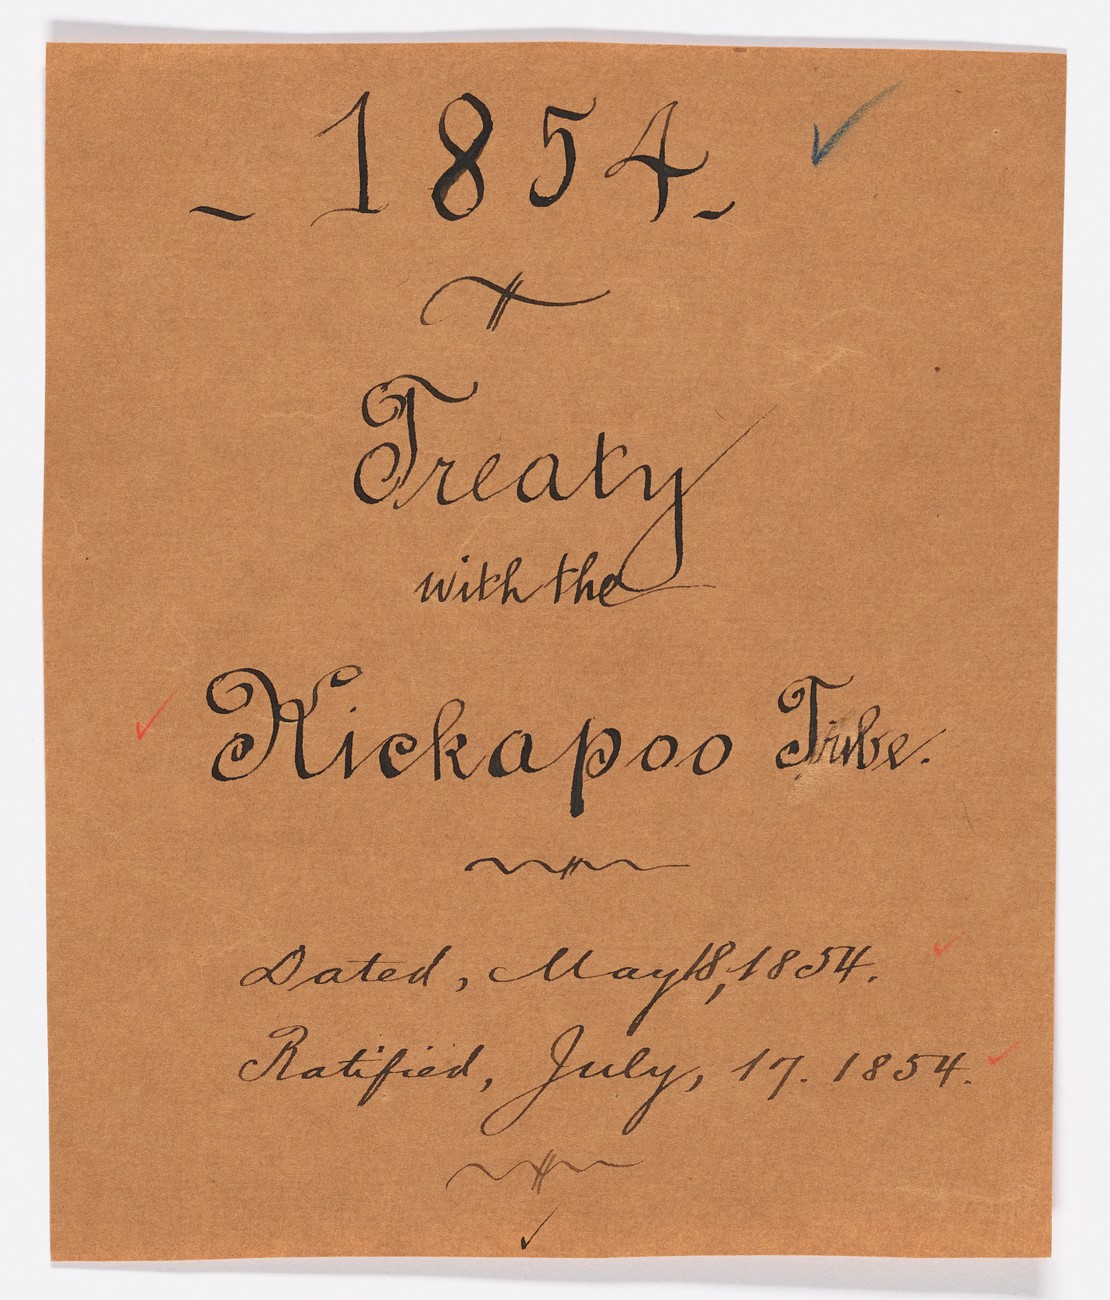 - 1854 -
Treaty
with the
Kickapoo Tribe.
Dated, May 18, 1854.
Ratified, July, 17. 1854.